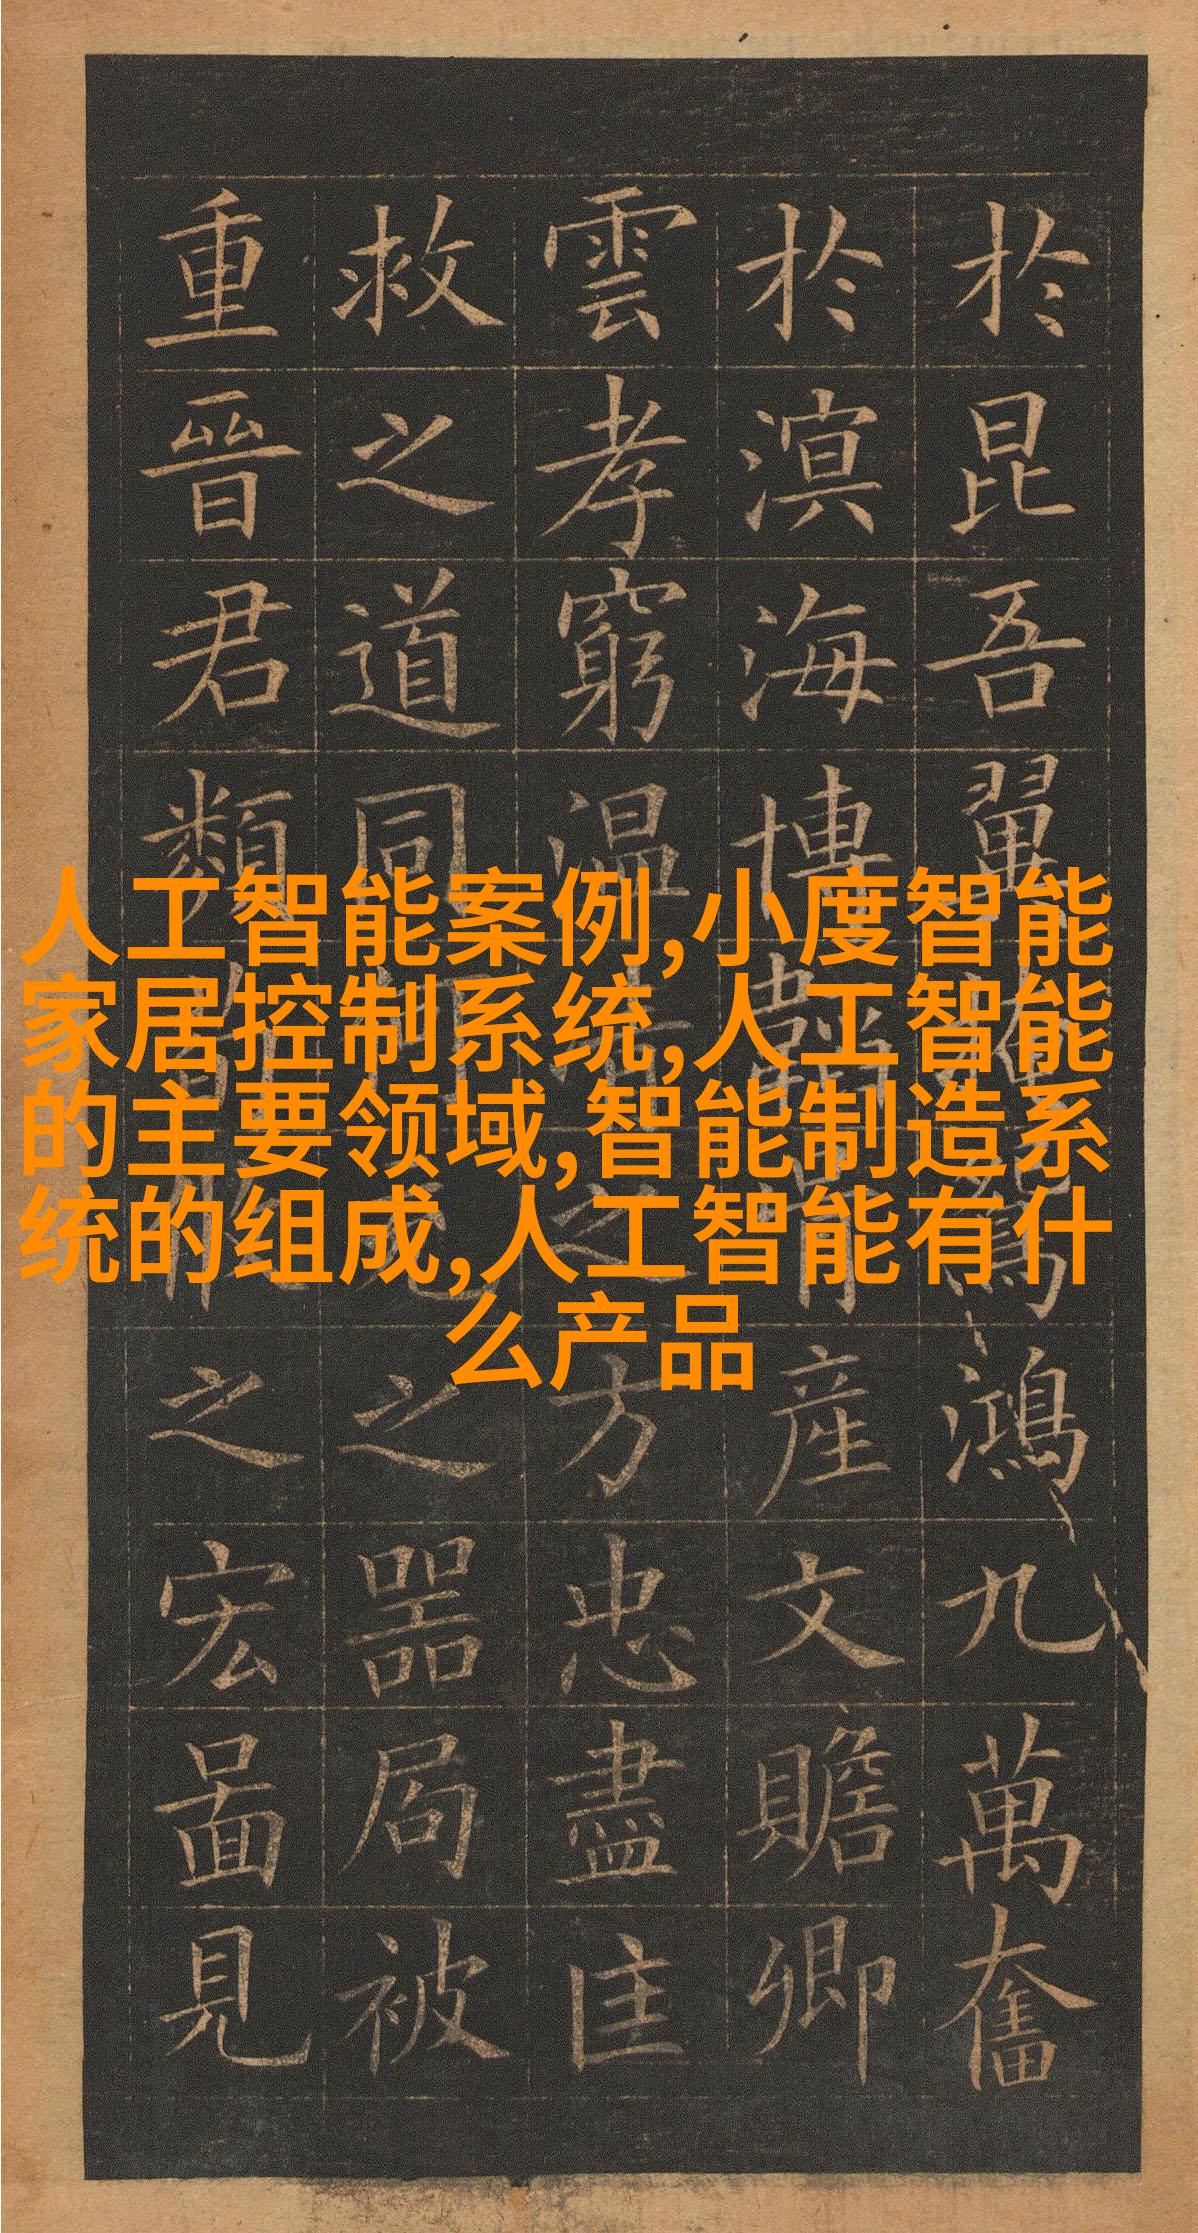 於昆吾翼鴻九萬奮
於溟海博產文贍卿
雲孝窮温之方忠盡匡
救之道同之器局被
重晉君類之宏啚見
人工智能案例,小度智能
家居控制系统,人工智能
的主要领域,智能制造系
统的组成,人工智能有什
么产品